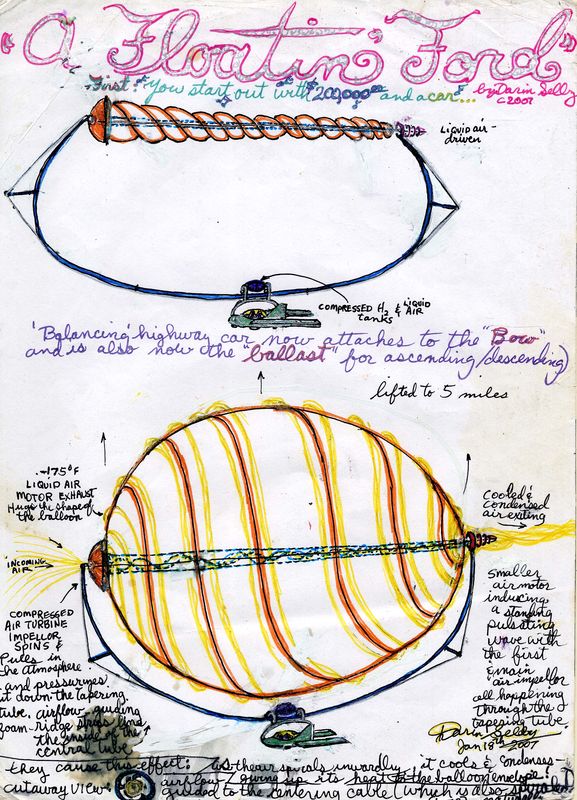 "A Floatin' Ford"
First: You start out with $20,000.00 and a car...
by Darin Selby
c 2007
LIQUID air-
driven
COMPRESSED H2 & LIQUID AIR
tanks
'Balancing' highway car now attaches to the "Bow"
and is also now the "ballast" for ascending/descending)
lifted to 5 miles
-175°F
LIQUID AIR
MOTOR EXHAUST
Hugs the shape of
the balloon
INCOMING
AIR
COOLED &
condensed
air exiting
COMPRESSED
AIR TURBINE
IMPELLOR
SPINS &
Pulls in
the atmosphere
and pressurizes
it down the tapering
tube, airflow guiding
foam-ridge strips line
the inside of the
central tube
Smaller
air motor
inducing
a standing
pulsating
wave with
the first
& main
air impellor
all happening
through the
tapering tube.
Darin Selby
Jan 18th 2007
they cause this effect: as the air spirals inwardly it cools & condenses-
airflow giving up its heat to the balloon envelope!
Cutaway VIEW: guided to the centering cable (which is also